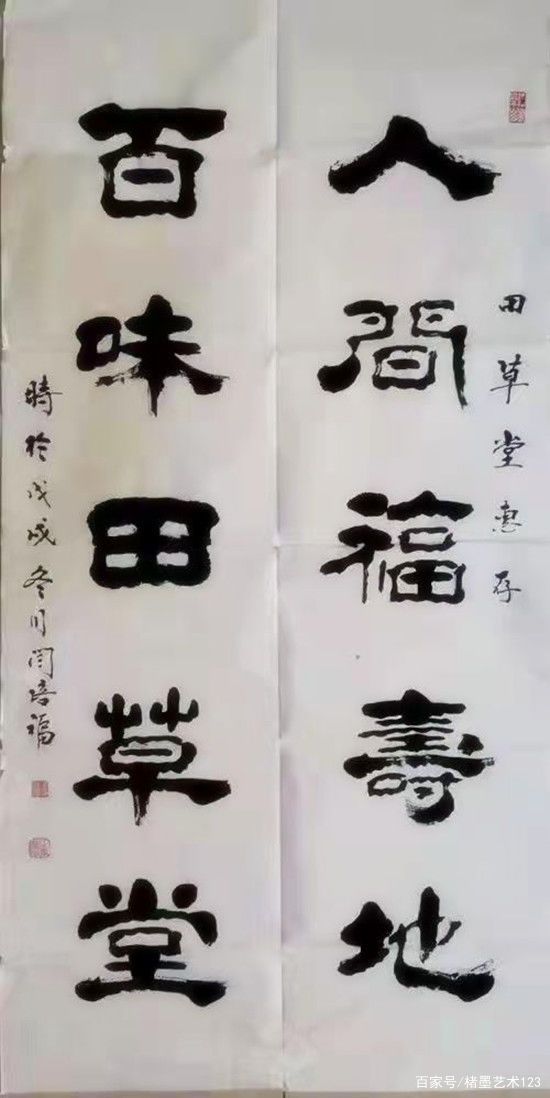 田草堂惠存
人間福壽地
百味田草堂
時於戊戌冬月闫培福
百家号/楮墨艺术123